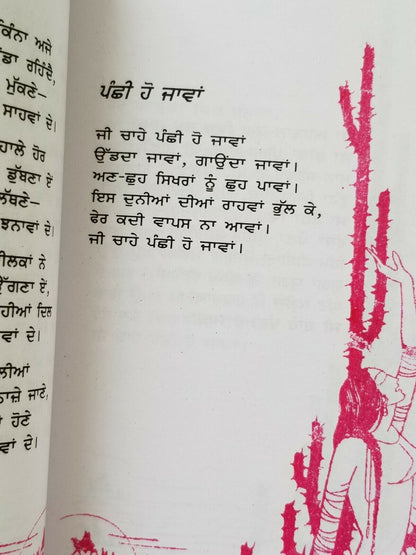 ਕਿੰਨਾ ਅਜੇ
ਰਹਿੰਦੈ,
ਮੁੱਕਣੇ—
ਸਾਹਵਾਂ ਦੇ।
ਹਾਲੇ ਹੋਰ
ਡੁੱਬਣਾ ਏਂ
ਲੱਭਣੇ—
ਝਨਾਵਾਂ ਦੇ।
ਦਿਲ
ਦੇ।
ਜਾਣੇ,
ਹੋਣੇ
ਦੇ।
ਪੰਛੀ ਹੋ ਜਾਵਾਂ
ਜੀ ਚਾਹੇ ਪੰਛੀ ਹੋ ਜਾਵਾਂ
ਉੱਡਦਾ ਜਾਵਾਂ, ਗਾਉਂਦਾ ਜਾਵਾਂ।
ਅਣ-ਛੁਹ ਸਿਖਰਾਂ ਨੂੰ ਛੁਹ ਪਾਵਾਂ।
ਇਸ ਦੁਨੀਆਂ ਦੀਆਂ ਰਾਹਵਾਂ ਭੁੱਲ ਕੇ,
ਫੇਰ ਕਦੀ ਵਾਪਸ ਨਾ ਆਵਾਂ।
ਜੀ ਚਾਹੇ ਪੰਛੀ ਹੋ ਜਾਵਾਂ।